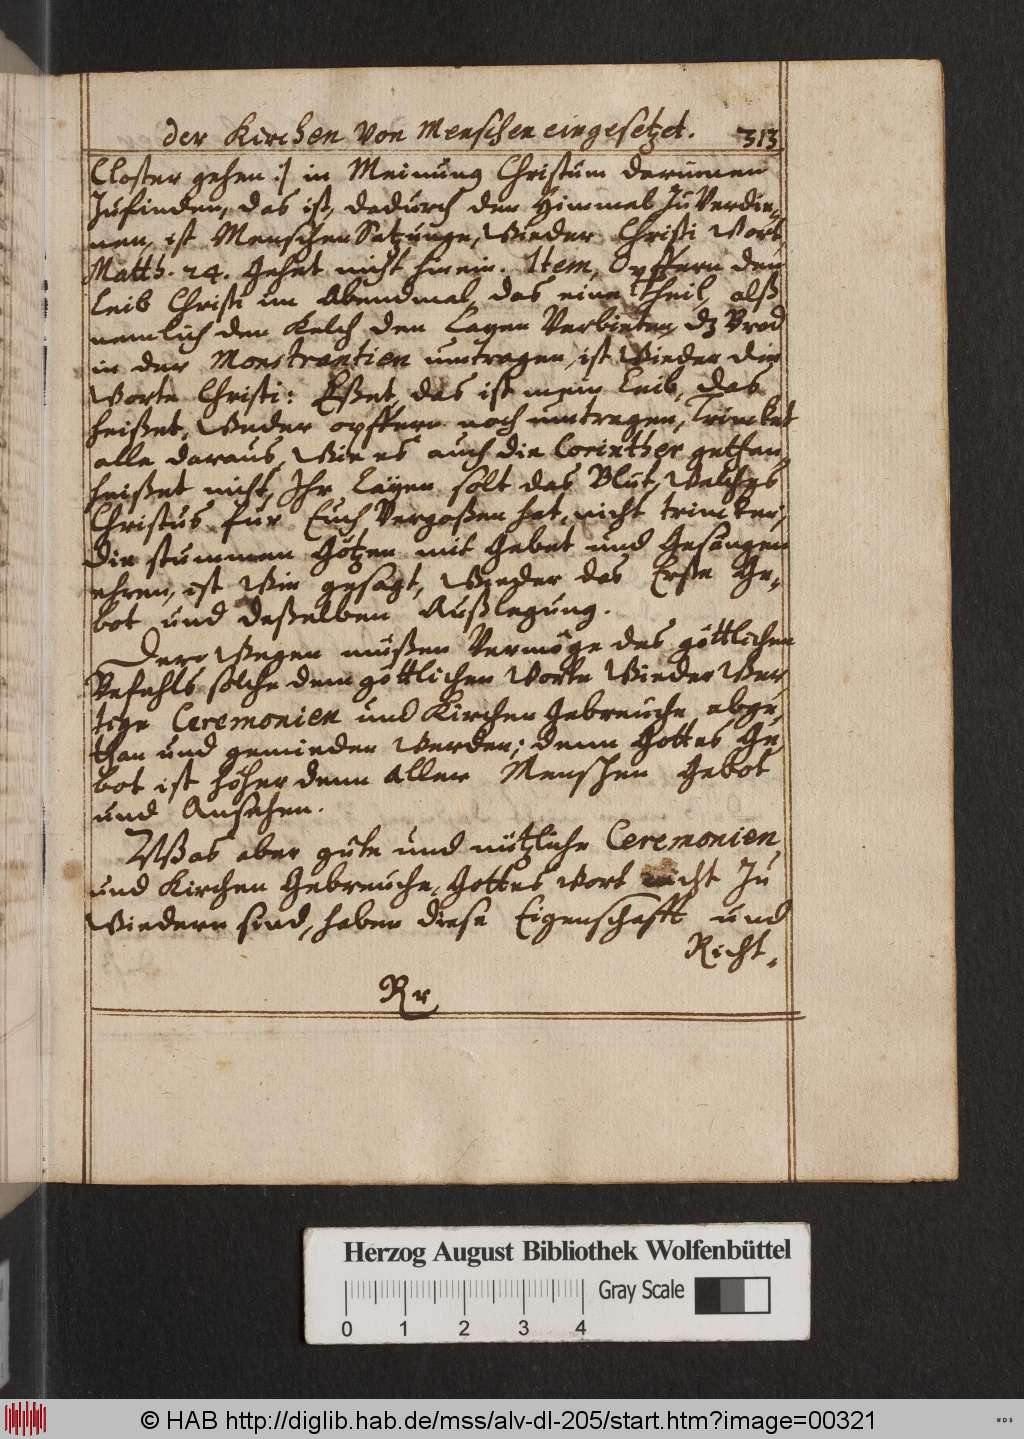 der Kirchen von Menschen eingesetzet. 313
Closter gehen :| in Meinung Christum darinnen
Zufinden, das ist, dadurch den Himmel Zu Verdie-
nen, ist Menschen Satzunge, Wieder Christi Wort,
Matth. 24. Gehet nicht hinein. Item, Opffern den
Leib Christi im Abendmal, das eine Theil, alß
nemlich den Kelch den Layen Verbieten, dz Brod
in der Monstrantien umtragen, ist Wieder die
Worte Christi: Eßet, das ist mein Leib, das
heißet, Weder opffern noch umtragen, Trincket
alle daraus, Wie es auch die Corinther gethan,
heißet nicht, Ihr Layen solt das Blut, Welches
Christus fur Euch Vergoßen hat, nicht trincken,
die stummen Götzen mit Gebet und Gesängen
ehren, ist Wie gesagt, Wieder das Erste Ge-
bot und deßelben Außlegung.
Dero Wegen müßen Vermöge des göttlichen
Befehls solche dem göttlichen Worte Wieder Wer
tige Ceremonien und Kirchen Gebreuche abge-
than und gemieden Werden; denn Gottes Ge-
bot ist höher denn aller Menschen Gebot
und Ansehen.
Waß aber gute und nützliche Ceremonien
und Kirchen Gebreuche, Gottes Wort nicht Zu
Wiedern sind, haben diese Eigenschafft und
Richt-
Rr
Herzog August Bibliothek Wolfenbüttel
Gray Scale
0 1 2 3 4
© HAB http://diglib.hab.de/mss/alv-dl-205/start.htm?image=00321